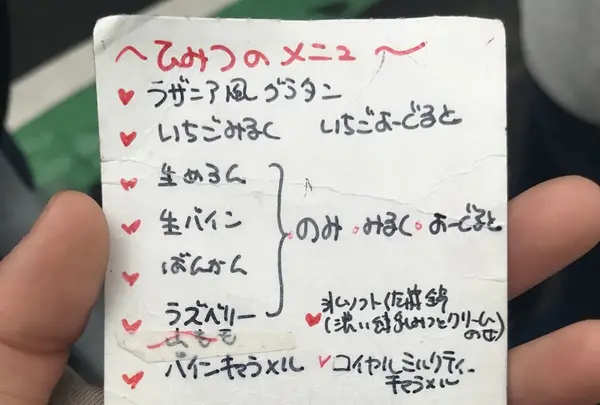 〜ひみつのメニュー〜
♥ラザニア風グラタン
♥いちごみるく いちごよーぐると
♥生めろん
♥生パイン
♥ばんかん
♥ラズベリー
のみ・みるく・よーぐると
♥パインキャラメル
氷ソフト
♥(濃い
みつとクリーム
のせ)
✓ロイヤルミルクティー
キャラメル